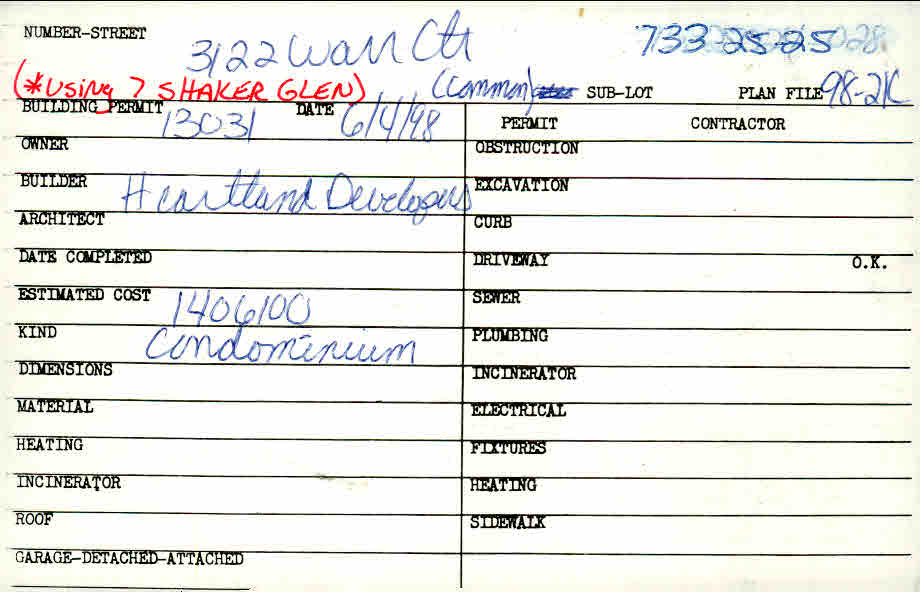 NUMBER-STREET 3122 Warr Ctr 733 25-25 028
(*Using 7 SHAKER GLEN) (Common) SUB-LOT PLAN FILE 98-21C
BUILDING PERMIT 13031 DATE 6/4/98 PERMIT CONTRACTOR
OWNER OBSTRUCTION
BUILDER Heartland Developers EXCAVATION
ARCHITECT CURB
DATE COMPLETED DRIVEWAY O.K.
ESTIMATED COST 1406100 SEWER
KIND Condominium PLUMBING
DIMENSIONS INCINERATOR
MATERIAL ELECTRICAL
HEATING FIXTURES
INCINERATOR HEATING
ROOF SIDEWALK
GARAGE-DETACHED-ATTACHED